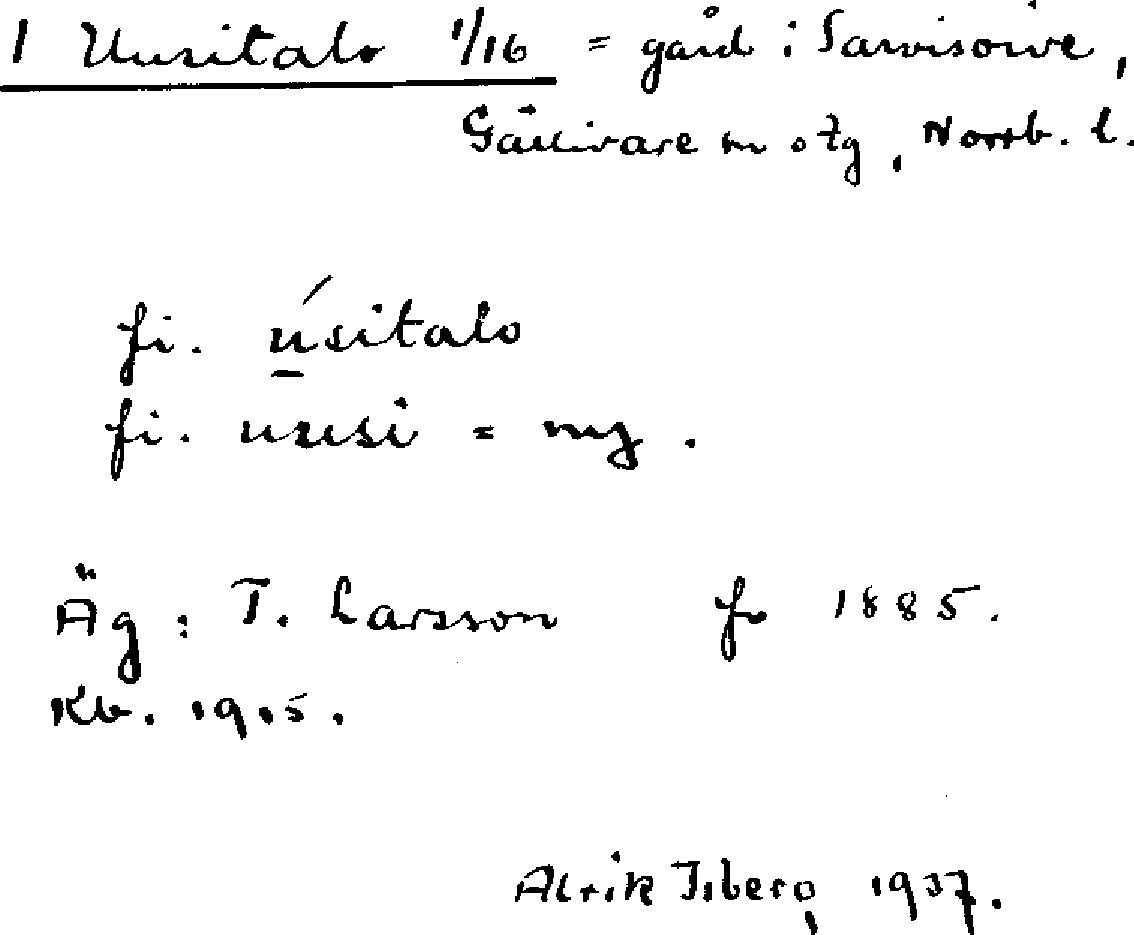 1 Uusitalo 1/16 = gård i Sarvisoive,
Gällivare sn o tg, Norrb. l.
fi. úsitalo
fi. uusi = ny.
Äg: T. Larsson f. 1885.
Kb. 1915.
Alrik Isberg 1937.